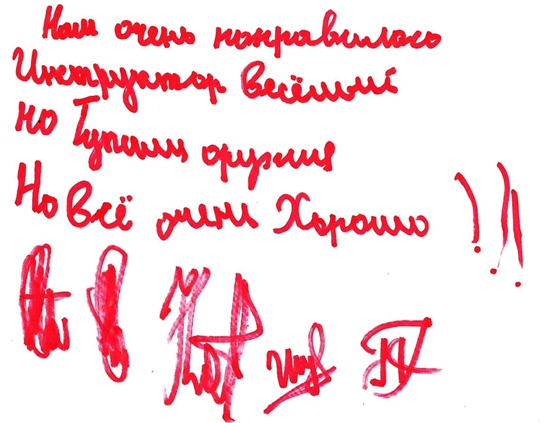 Нам очень понравилось
Инструктор весёлый
но Тупили оружия
Но всё очень Хорошо!!!